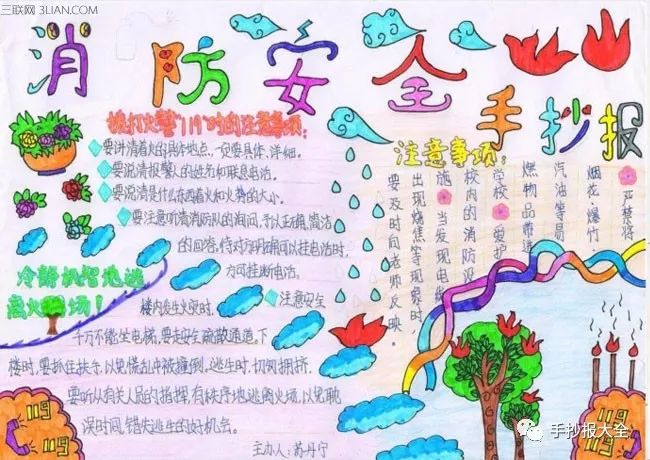 三联网 3LIAN.COM
消防安全手抄报
拨打火警"119"时的注意事项:
要讲清着火的具体地点,一定要具体、详细。
要说清报警人的姓名和联系电话。
要说清是什么东西着火和火势的大小。
要注意听清消防队的询问,予以正确、简洁
的回答,待对方明确可以挂电话时,
方可挂断电话。
冷静机智地逃
离火场!
注意安全
楼内发生火灾时,
千万不能坐电梯,要走安全疏散通道。下
楼时,要抓住扶手,以免慌乱中被撞倒。逃生时,切勿拥挤,
要听从有关人员的指挥,有秩序地逃离火场,以免耽
误时间,错失逃生的好机会。
主办人:苏丹宁
注意事项:
严禁将
烟花、爆竹
汽油等易
燃物品带进
学校。爱护
校内的消防设
施。当发现电线
出现烧焦等现象时,
要及时向老师反映。
119
119
119
119
手抄报大全